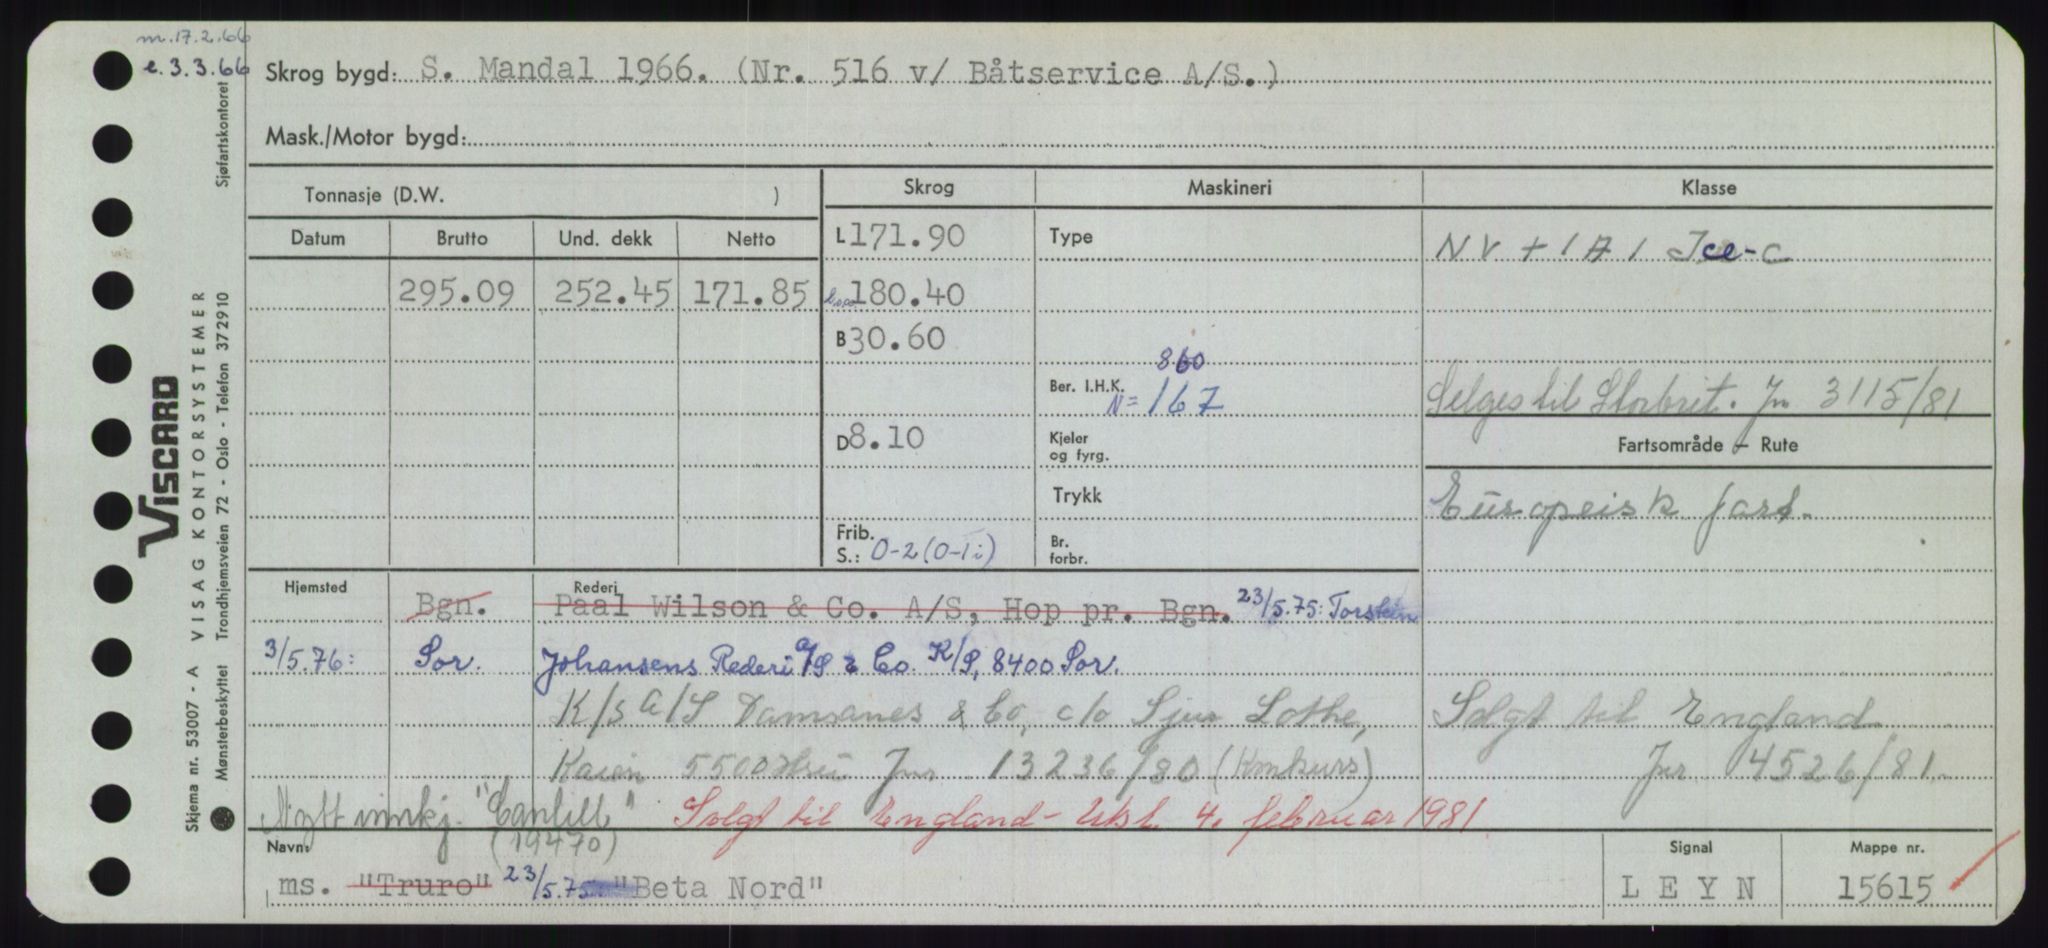 m. 17.2.66
e. 3.3.66
Skrog bygd: S. Mandal 1966. (Nr. 516 v/ Båtservice A/S.)
Mask./Motor bygd:
Tonnasje (D.W. )
Skrog
Maskineri
Klasse
Datum
Brutto
Und. dekk
Netto
L 171.90
Type
NV + 1A1 Ice-C
295.09
252.45
171.85
180.40
B 30.60
860
Ber. I.H.K.
N= 167
Selges til Storbrit. Jn 3115/81
D 8.10
Kjeler og fyrg.
Fartsområde – Rute
Trykk
Europeisk fart.
Frib. S.: 0-2 (0-1 i)
Br. forbr.
Hjemsted
Bgn.
Rederi
Paal Wilson & Co. A/S, Hop pr. Bgn. 23/5.75: Torstein
3/5.76: Sor. Johansens Rederi A/S & Co. K/S, 8400 Sor.
K/S A/S Damsanes & Co, c/o Sjur Lothe,
Solgt til England
Kaien 5500 Jnr 13236/80 (Konkurs)
Jnr 4526/81.
Nytt innkj. "Canlill" (19470)
Solgt til England - Utsl. 4. februar 1981
Navn:
ms. "Truro" 23/5.75 "Beta Nord"
Signal
LEYN
Mappe nr.
15615
Sjøfartskontoret
VISCARD
VISAG KONTORSYSTEMER
Trondhjemsveien 72 - Oslo - Telefon 372910
Skjema nr. 53007 - A
Mønsterbeskyttet